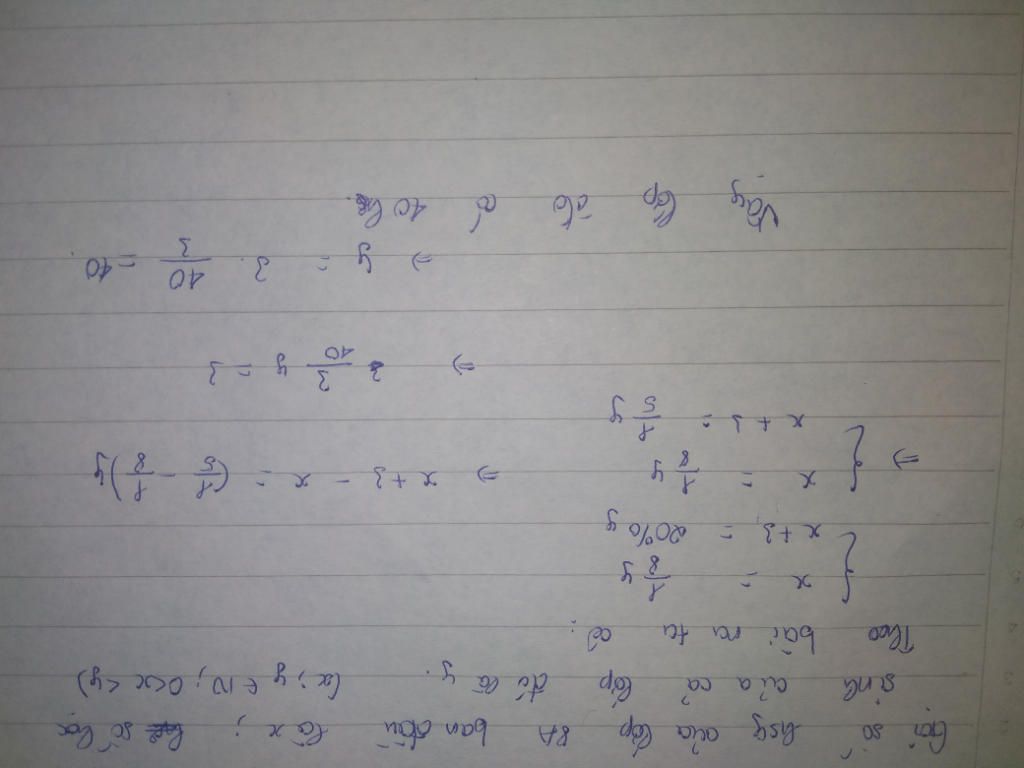 Gọi số hsg của lớp 8A ban đầu là x ; số học
sinh của cả lớp đó là y. (x; y ∈ N; 0<x<y)
Theo bài ra ta có:
{ x = 1/8 y
x + 3 = 20% y
=> { x = 1/8 y => x + 3 - x = (1/5 - 1/8) y
x + 3 = 1/5 y
=> 3/40 y = 3
=> y = 3 . 40/3 = 40.
Vậy lớp đó có 40